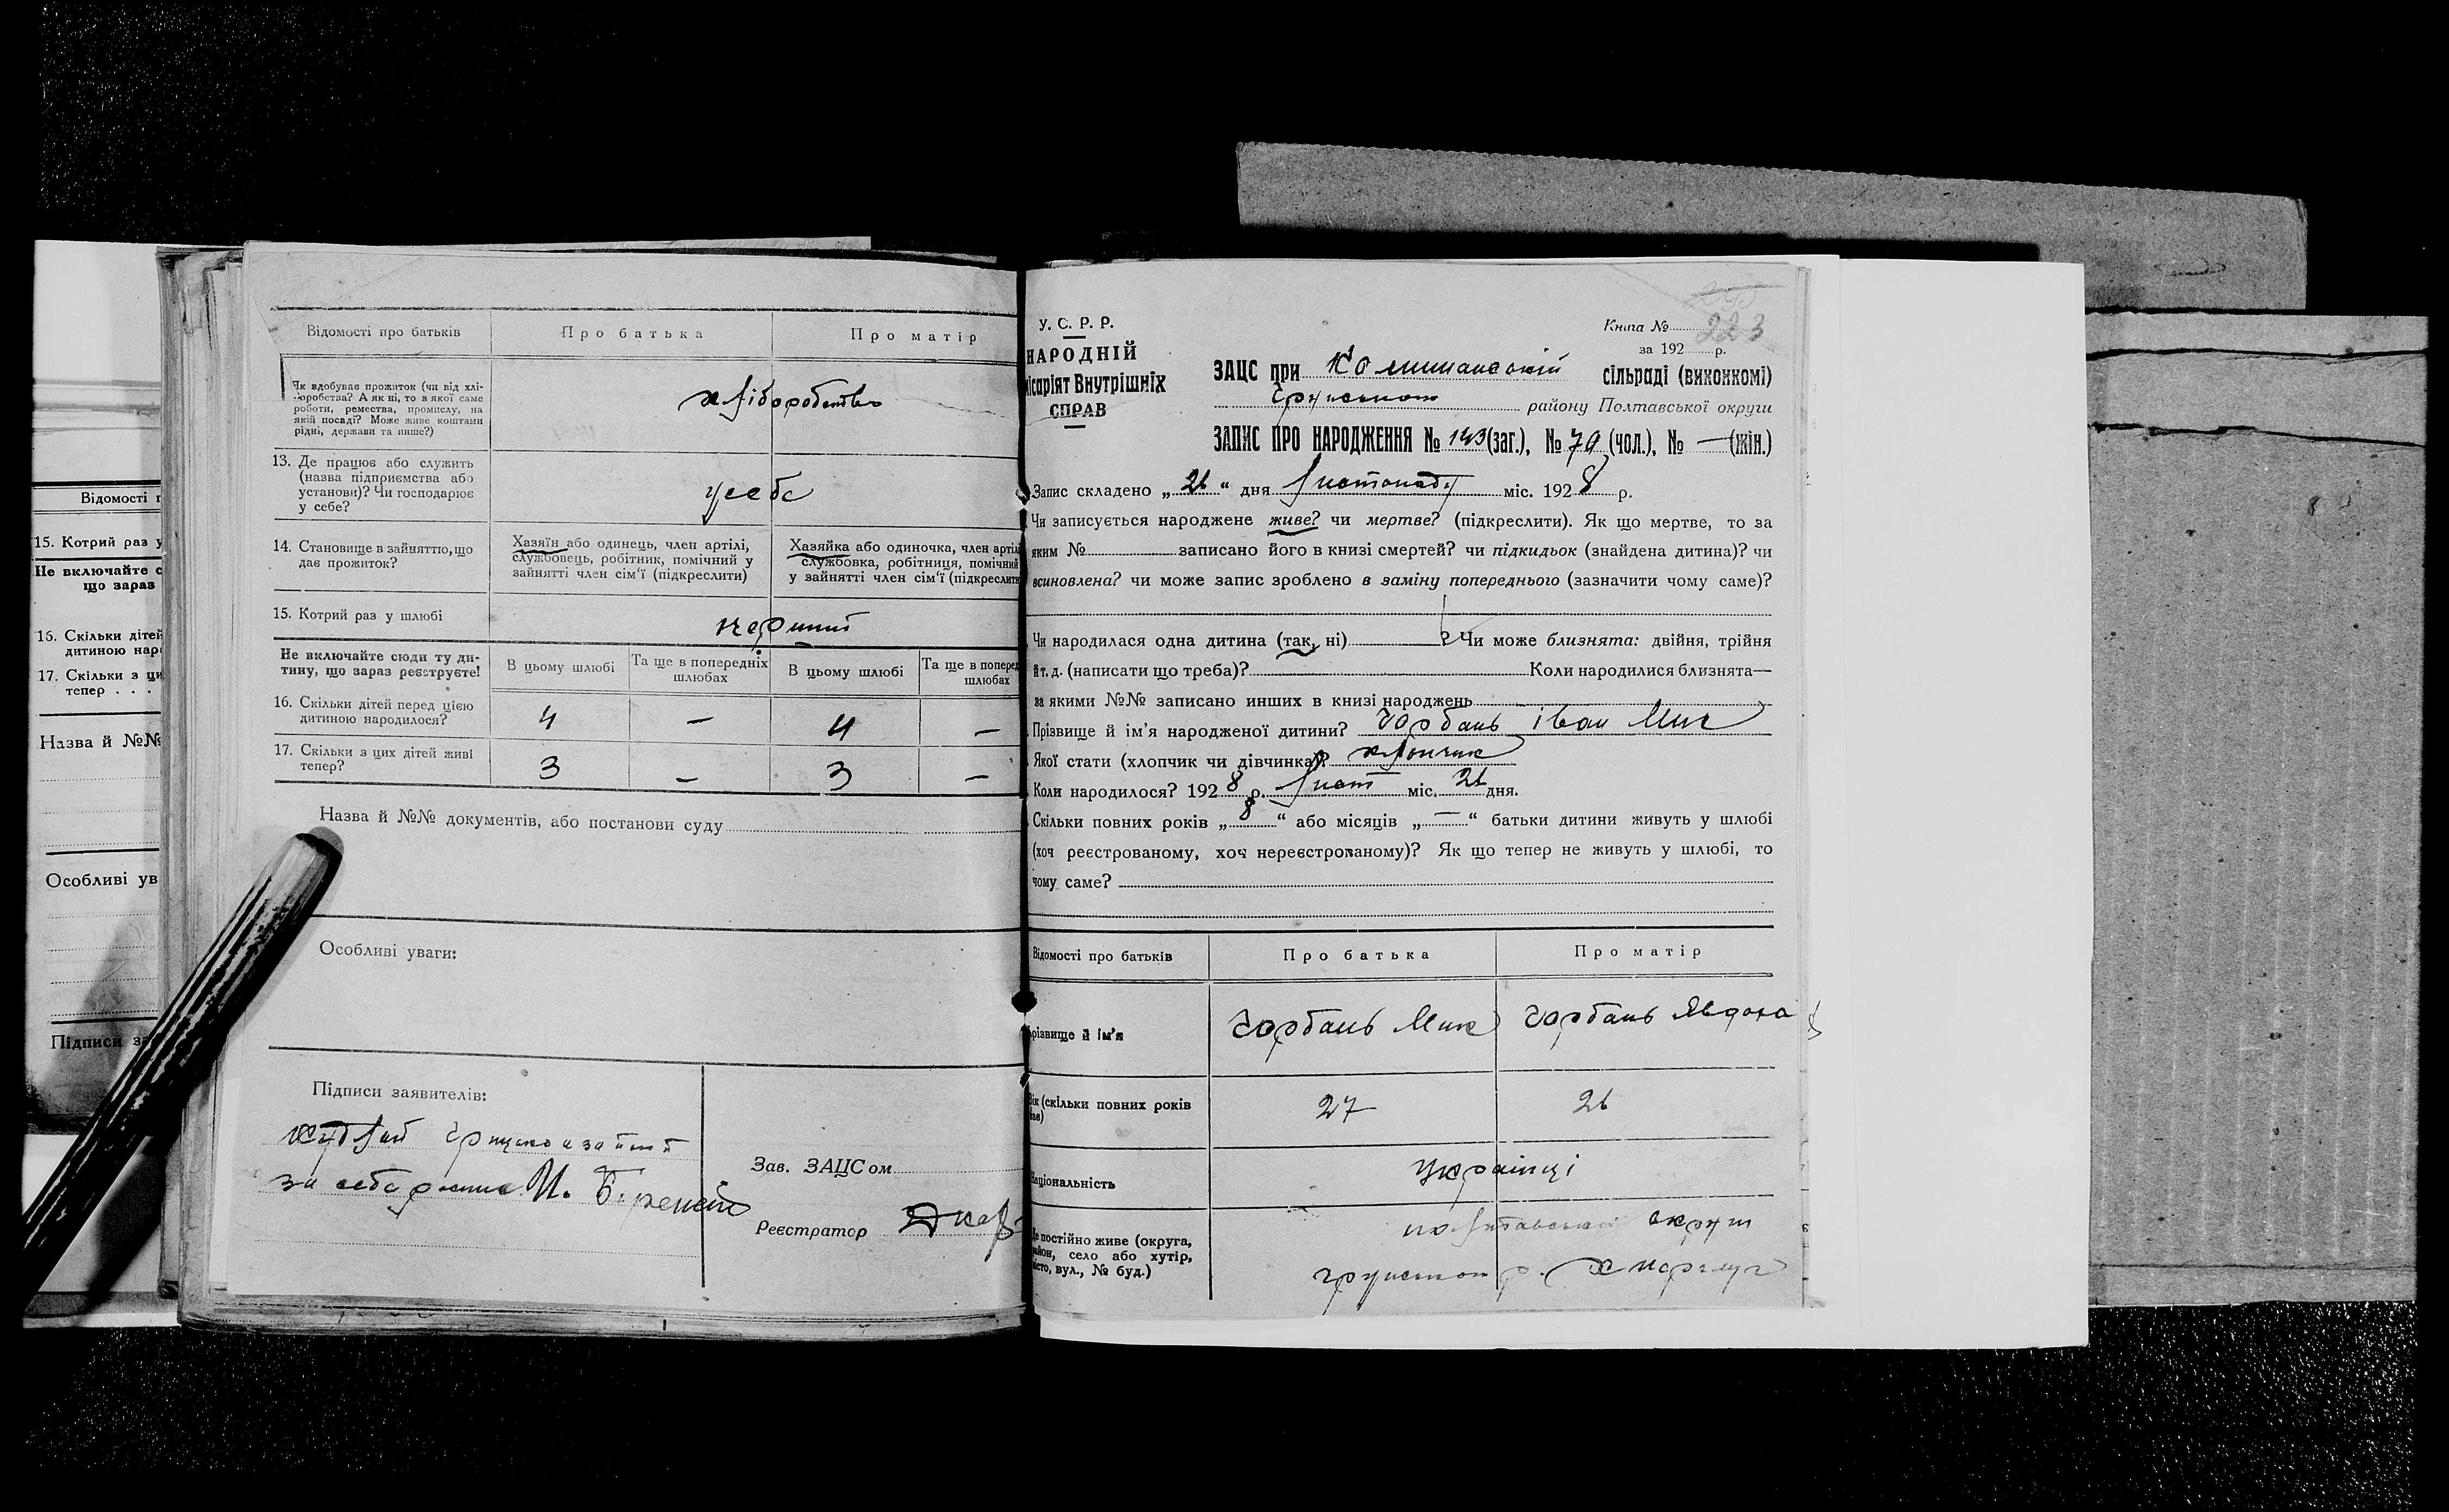 Відомості п
15. Котрий раз у
Не включайте с
що зараз
16. Скільки дітей
дитиною наро
17. Скільки з ци
тепер . . .
Назва й №№
Особливі ув
Підписи за
Відомості про батьків Про батька Про матір
Як вдобуває прожиток (чи від хлі-
боробства? А як ні, то в якої саме
роботи, ремества, промислу, на
якій посаді? Може живе коштами
рідні, держави та инше?)
хліборобство
13. Де працює або служить
(назва підприємства або
установи)? Чи господарює
у себе?
у себе
14. Становище в зайняттю, що
дає прожиток?
Хазяїн або одинець, член артілі,
службовець, робітник, помічний у
зайнятті член сім'ї (підкреслити)
Хазяйка або одиночка, член артілі
службовка, робітниця, помічний
у зайнятті член сім'ї (підкреслити
15. Котрий раз у шлюбі
перший
Не включайте сюди ту ди-
тину, що зараз реєструєте!
В цьому шлюбі Та ще в попередніх шлюбах В цьому шлюбі Та ще в поперед шлюбах
16. Скільки дітей перед цією
дитиною народилося?
4 — 4 —
17. Скільки з цих дітей живі
тепер?
3 — 3 —
Назва й №№ документів, або постанови суду
Особливі уваги:
Підписи заявителів:
за себе
Зав. ЗАЦСом
Реєстратор
У. С. Р. Р.
НАРОДНІЙ
ісаріят Внутрішніх
СПРАВ
Книга № 223
за 192 р.
ЗАЦС при сільраді (виконкомі)
району Полтавської округи
ЗАПИС ПРО НАРОДЖЕННЯ № 143 (заг.), № 79 (чол.), № — (жін.)
Запис складено „ 26 “ дня Листопаду міс. 192 8 р.
Чи записується народжене живе? чи мертве? (підкреслити). Як що мертве, то за
яким № записано його в книзі смертей? чи підкидьок (знайдена дитина)? чи
всиновлена? чи може запис зроблено в заміну попереднього (зазначити чому саме)?
Чи народилася одна дитина (так, ні) ? Чи може близнята: двійня, трійня
й т. д. (написати що треба)? Коли народилися близнята—
за якими №№ записано инших в книзі народжень
Прізвище й ім'я народженої дитини? Горбань Іван Мик
Якої стати (хлопчик чи дівчинка)? хлопчик
Коли народилося? 192 8 р. Лист міс. 26 дня.
Скільки повних років „ 8 “ або місяців „ — “ батьки дитини живуть у шлюбі
(хоч реєстрованому, хоч нереєстрованому)? Як що тепер не живуть у шлюбі, то
чому саме?
Відомості про батьків Про батька Про матір
різвище й ім'я Горбань Мик Горбань Явдоха
Вік (скільки повних років
має)
27 26
Національність Українці
Де постійно живе (округа,
район, село або хутір,
місто, вул., № буд.)
полтавської округи